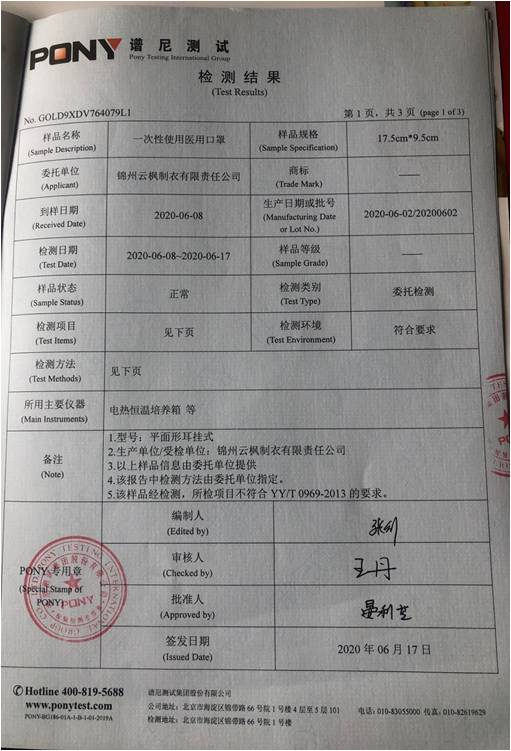 PONY 谱尼测试
Pony Testing International Group
检测结果
(Test Results)
No. GOLD9XDV764079L1
第 1 页，共 3 页 (page 1 of 3)
样品名称
(Sample Description)
一次性使用医用口罩
样品规格
(Sample Specification)
17.5cm*9.5cm
委托单位
(Applicant)
锦州云枫制衣有限责任公司
商标
(Trade Mark)
——
到样日期
(Received Date)
2020-06-08
生产日期或批号
(Manufacturing Date
or Lot No.)
2020-06-02/20200602
检测日期
(Test Date)
2020-06-08~2020-06-17
样品等级
(Sample Grade)
——
样品状态
(Sample Status)
正常
检测类别
(Test Type)
委托检测
检测项目
(Test Items)
见下页
检测环境
(Test Environment)
符合要求
检测方法
(Test Methods)
见下页
所用主要仪器
(Main Instruments)
电热恒温培养箱 等
备注
(Note)
1.型号：平面形耳挂式
2.生产单位/受检单位：锦州云枫制衣有限责任公司
3.以上样品信息由委托单位提供
4.该报告中检测方法由委托单位指定。
5.该样品经检测，所检项目不符合 YY/T 0969-2013 的要求。
PONY 专用章
(Special Stamp of
PONY)
编制人
(Edited by)
审核人
(Checked by)
王丹
批准人
(Approved by)
签发日期
(Issued Date)
2020 年 06 月 17 日
Hotline 400-819-5688
www.ponytest.com
PONY-BG186-01A-1-B-1-01-2019A
谱尼测试集团股份有限公司
公司地址：北京市海淀区锦带路 66 号院 1 号楼 4 层至 5 层 101
检测地址：北京市海淀区锦带路 66 号院 1 号楼
电话：010-83055000 传真：010-82619629